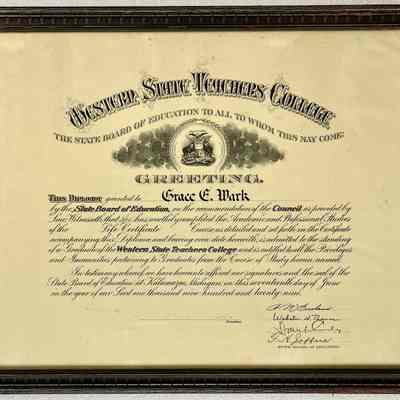 Western State Teachers College
THE STATE BOARD OF EDUCATION TO ALL TO WHOM THIS MAY COME:
GREETING.
This Diploma granted to Grace E. Wark
by the State Board of Education, on the recommendation of the Council as provided by
Law, Witnesseth, that she has creditably completed the Academic and Professional Studies
of the Life Certificate Course as detailed and set forth in the Certificate
accompanying this Diploma and having even date herewith, is admitted to the standing
of a Graduate of the Western State Teachers College and is entitled to all the Privileges
and Immunities pertaining to Graduates from the Course of Study herein named.
In testimony whereof, we have hereunto affixed our signatures and the seal of the
State Board of Education at Kalamazoo, Michigan, on this seventeenth day of June
in the year of our Lord one thousand nine hundred and twenty nine.
STATE BOARD OF EDUCATION